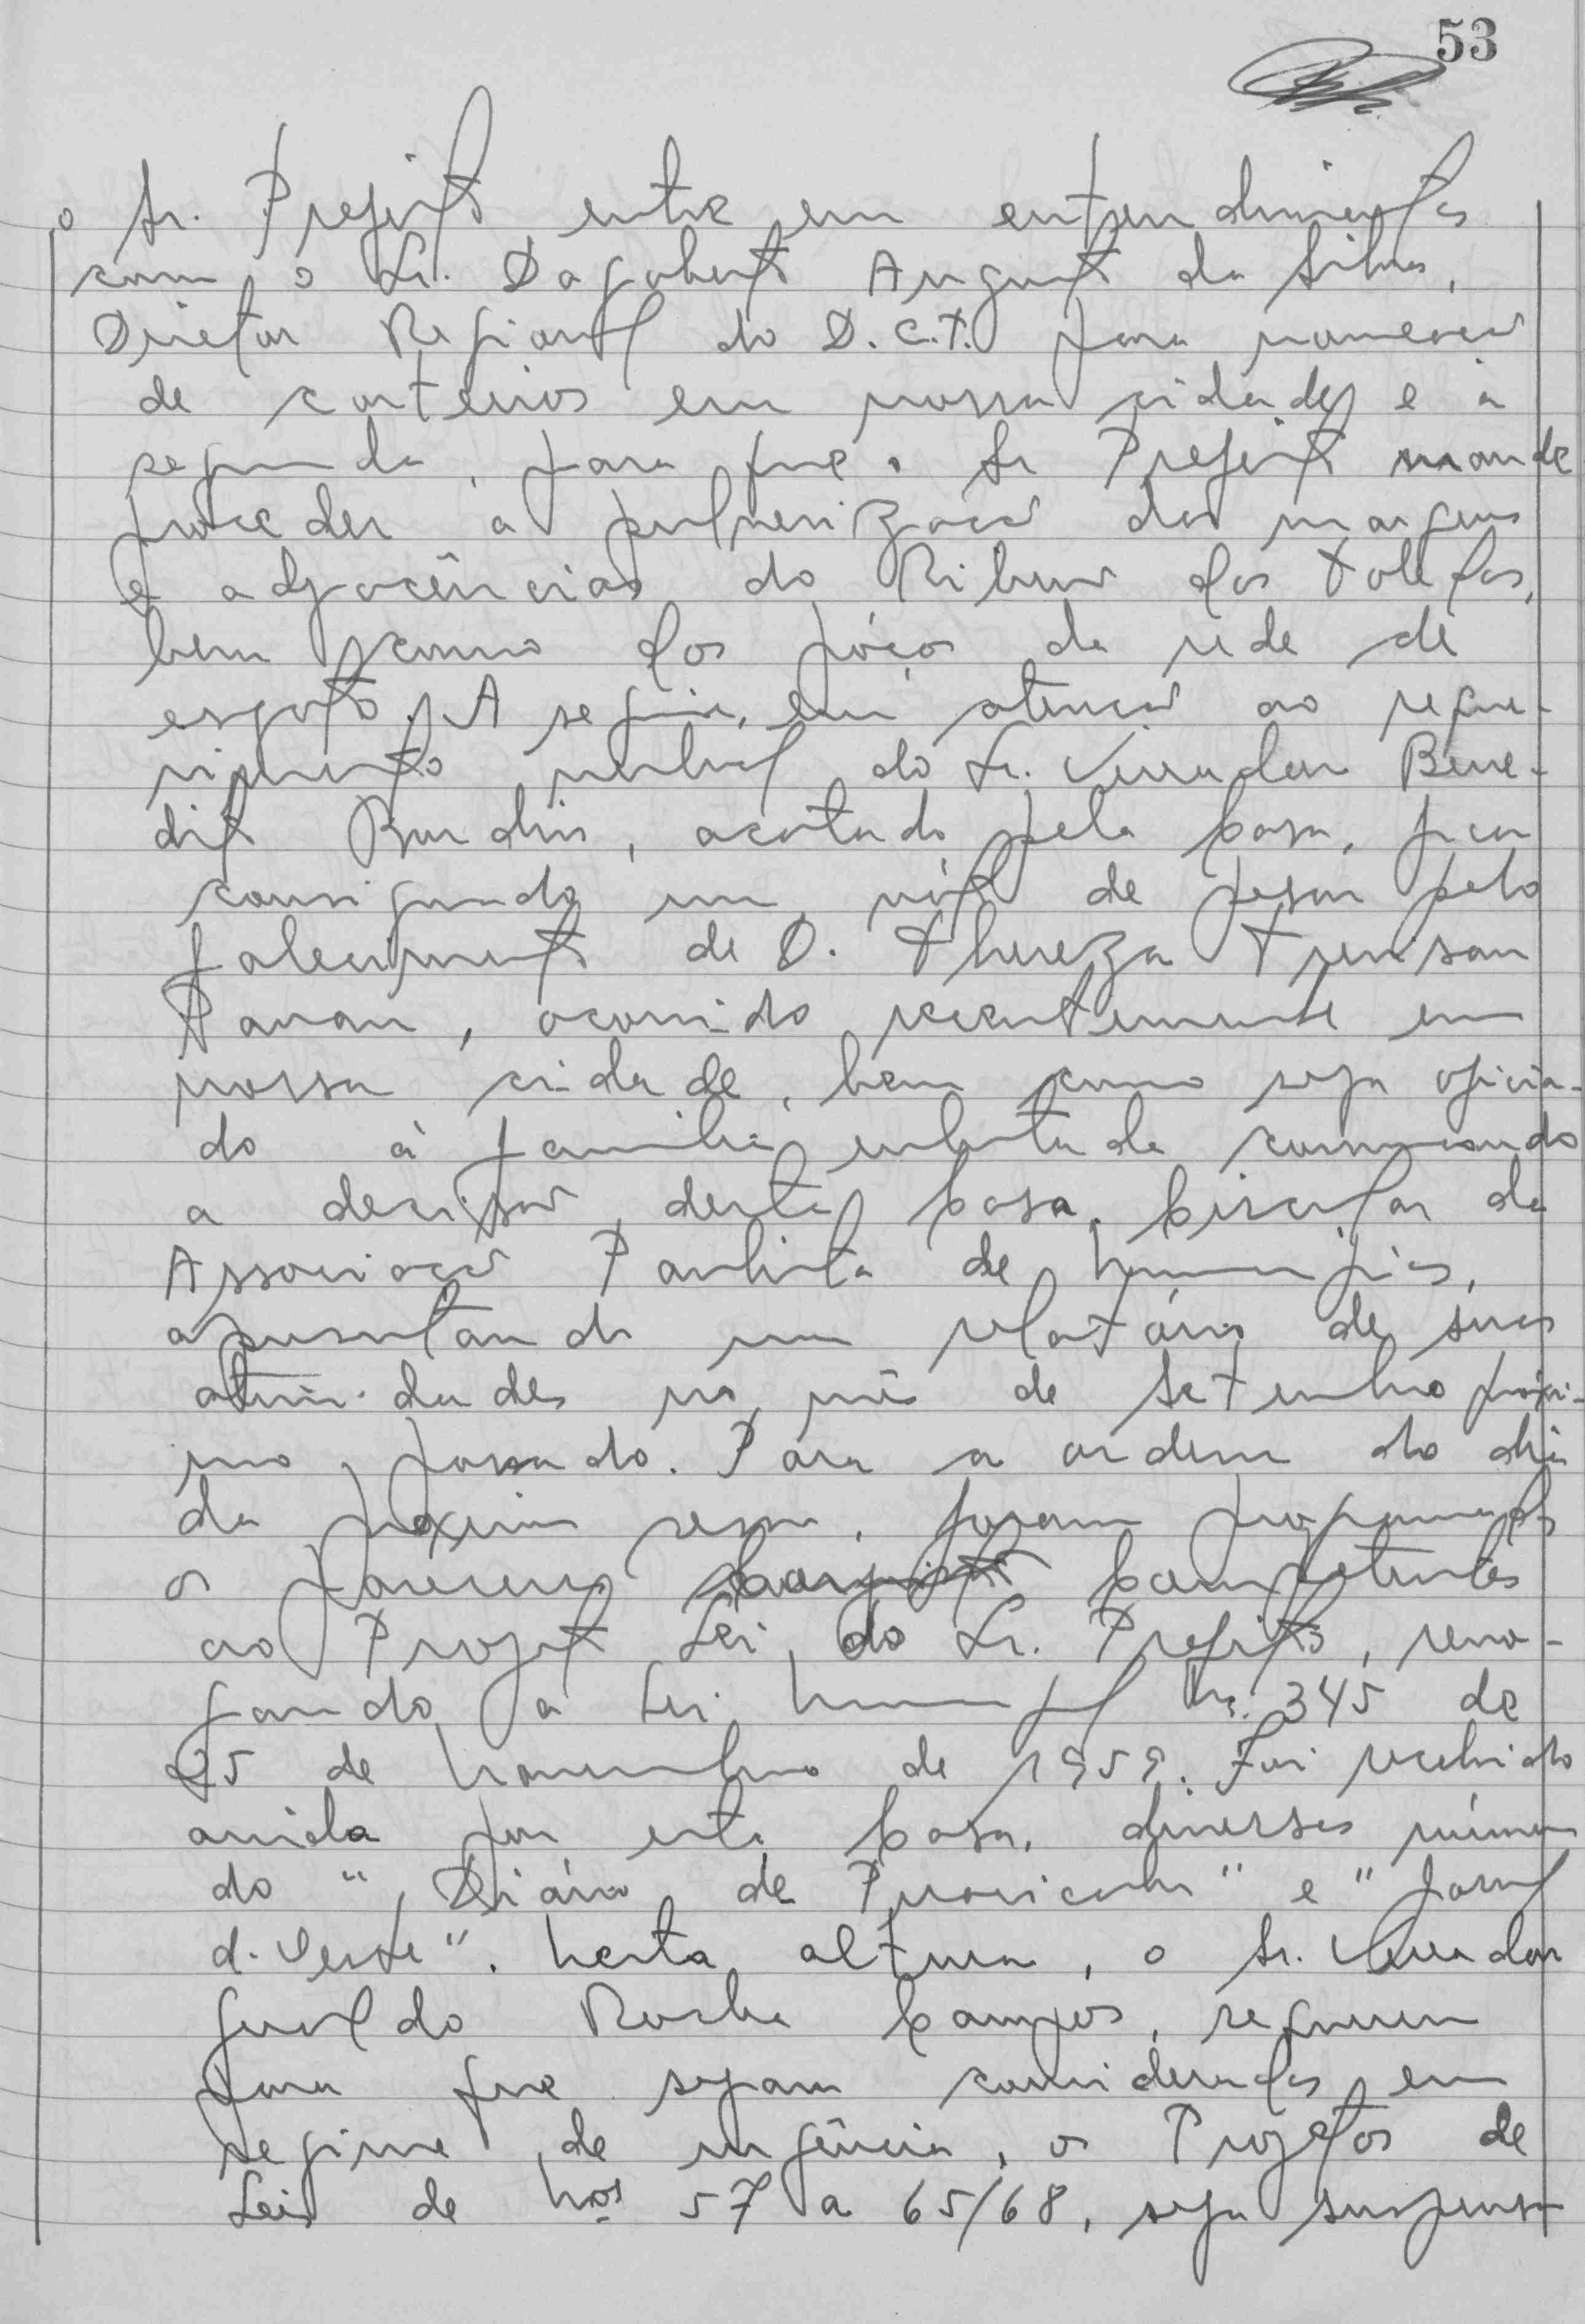 53
o Sr. Prefeito entre em entendimentos
com o Sr. Dagoberto Augusto da Silva,
Diretor Regional do D.C.T. para nomeação
de carteiros em nossa cidade; e a
segunda, para que o Sr Prefeito mande
proceder a pulverização das margens
e adjacências do Ribeirão dos Toledos,
bem como dos póços da rede de
esgoto. A seguir, em atenção ao reque-
rimento verbal do Sr. Vereador Bene-
dito Bardin, acatado pela Casa, fica
consignado um vóto de pesar pelo
falecimento de D. Thereza Trevisan
Pavan, ocorrido recentemente em
nossa cidade, bem como seja oficia-
do à familia enlutada comunicando
a decisão desta Casa. Circular da
Associação Paulista de Municipios,
apresentando um relatório de suas
atividades no mês de Setembro próxi-
mo passado. Para a ordem do dia
da próxima sessão, foram
o parecer competentes
ao Projeto Lei do Sr. Prefeito, revo-
gando a Lei Municipal Nº. 345 de
25 de Novembro de 1959. Foi recebido
ainda por esta Casa, diversos números
do "Diário de Piracicaba" e "Jornal
d'Oeste". Nesta altura, o Sr. Vereador
Geraldo Rocha Campos, requereu
para que sejam considerados em
regime de urgência, os Projetos de
Leis de Nºs 57 a 65/68, seja suspensa